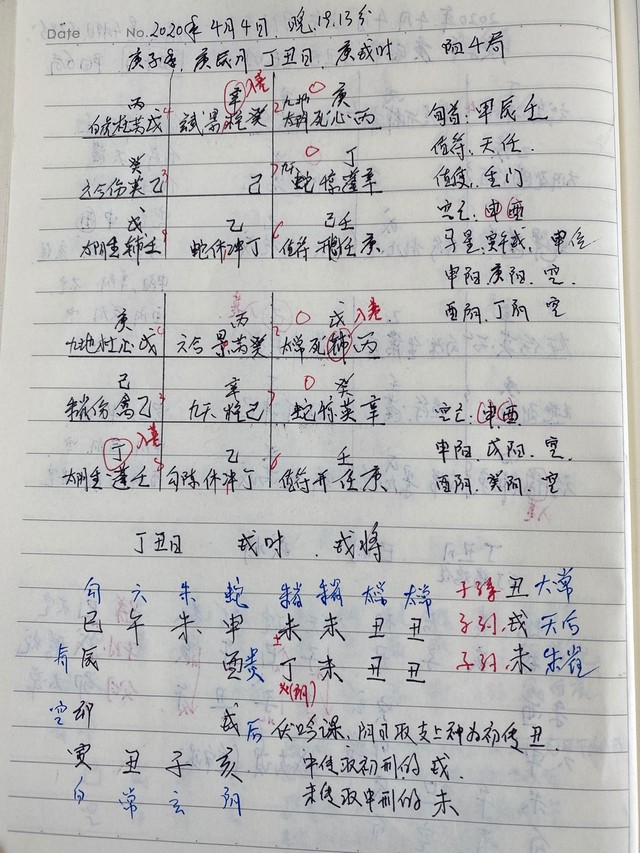 Date No. 2020年4月4日,晚19.13分
庚子年,庚辰月丁丑日,庚戌时 阳4局
丙 辛 入墓 庚 旬首:甲辰壬
白虎杜芮戊 景柱癸 九地 死心丙 值符,天任
癸 丁 值使,生门
六合伤英己 己 蛇惊蓬辛 空亡,申酉
戊 乙 己壬
太阴生辅壬 蛇休冲丁 值符开任庚 申阳,庚阳,空
酉阴,丁阴,空
庚 丙 戊 入墓
九地杜心戊 六合景芮癸 太常死辅丙
己 辛 癸
朱雀伤禽己 九天柱己 蛇惊英辛 空亡:申酉
丁 入墓 乙 壬 申阳,戊阳,空
太阴生蓬壬 勾陈休冲丁 值符开任庚 酉阴,癸阴,空
丁丑日 戌时,戌将
勾 六 朱 蛇 朱雀 朱雀 太常 太常 子孙 丑 太常
巳 午 未 申 未 未 丑 丑 子孙,戌 天后
青辰 酉贵 丁 未 丑 丑 子孙,未 朱雀
空卯 戌后 伏吟课,阴日取支上神为初传丑.
寅 丑 子 亥 中传取初刑的戌.
白 常 玄 阴 末传取中刑的未